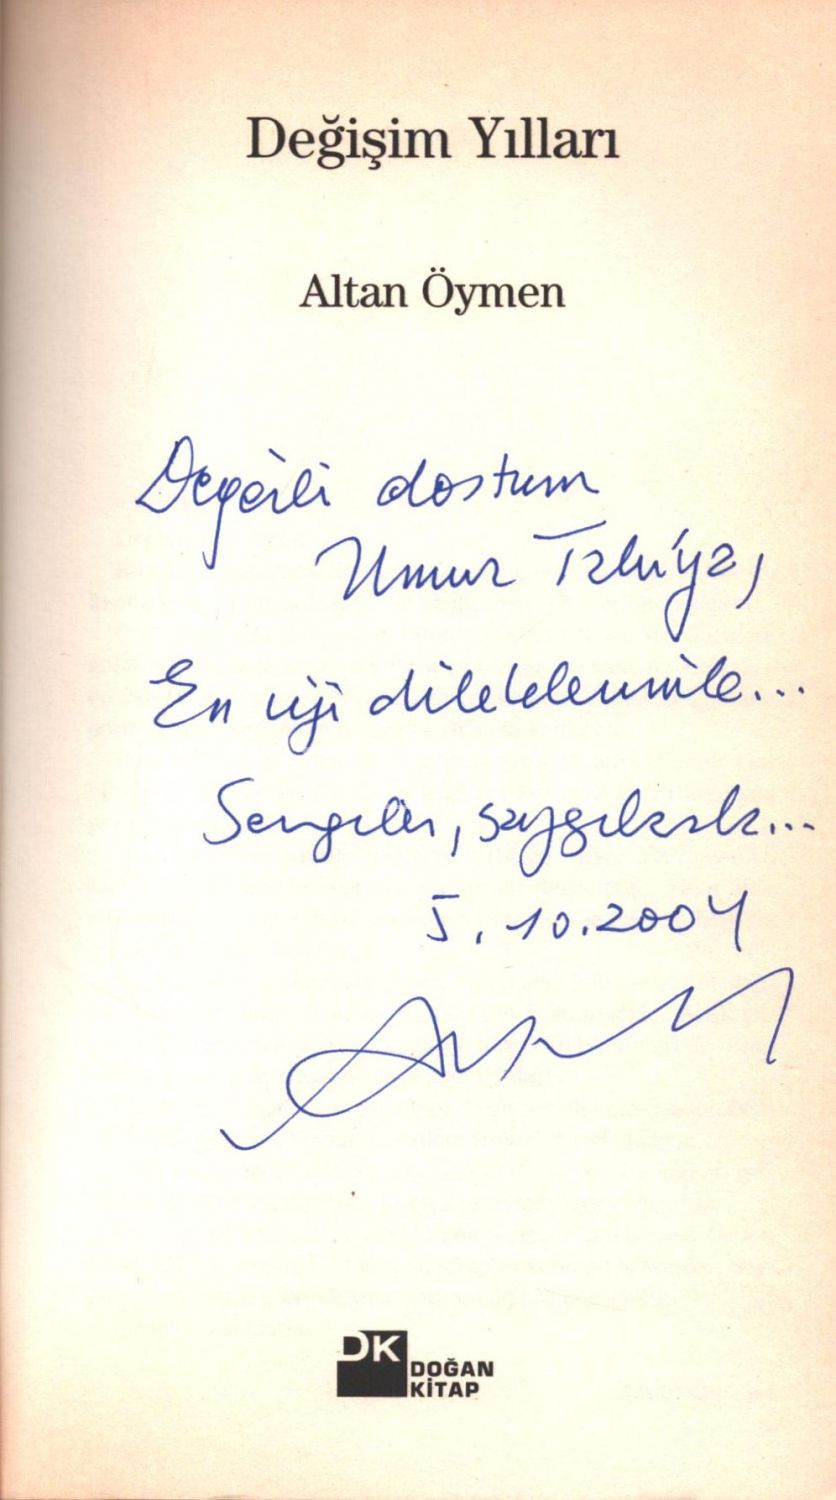 Değişim Yılları
Altan Öymen
Değerli dostum
Umur Talu'ya,
En iyi dileklerimle...
Sevgiler, saygılarla...
5.10.2004
DK
DOĞAN
KİTAP